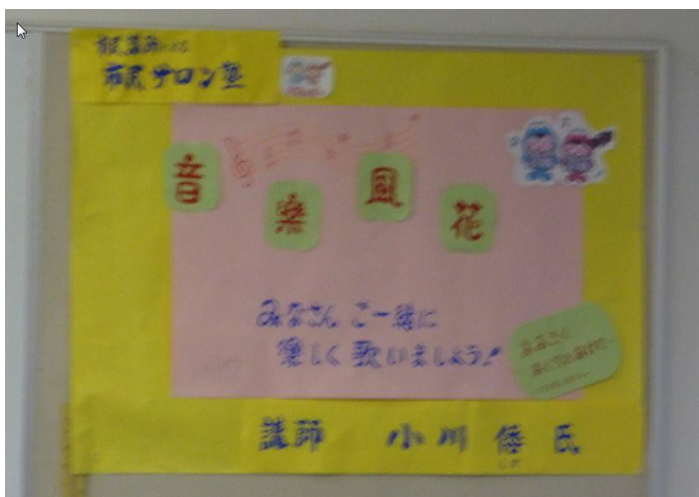 市民講師による
市民サロン塾
音楽風花
みなさん ご一緒に
楽しく歌いましょう!
講師 小川 倭 氏